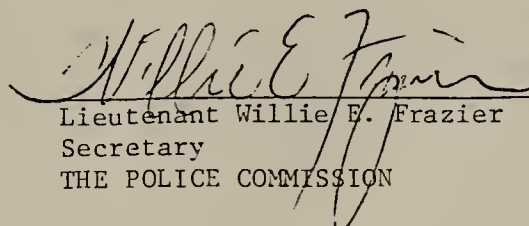 Willie E Frazier
Lieutenant Willie E. Frazier
Secretary
THE POLICE COMMISSION